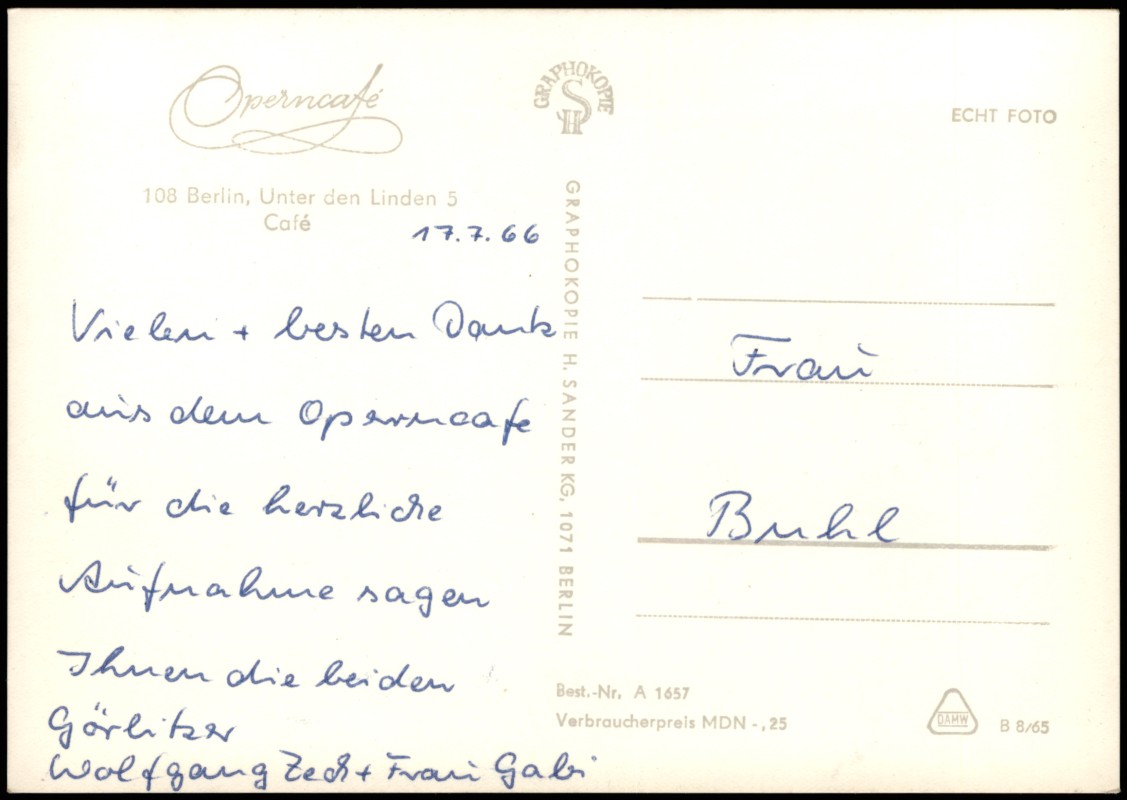 Operncafé
108 Berlin, Unter den Linden 5
Café
17.7.66
Vielen + besten Dank
aus dem Operncafe
für die herzliche
Aufnahme sagen
Ihnen die beiden
Görlitzer
Wolfgang Zech + Frau Gabi
GRAPHOKOPIE
H S
GRAPHOKOPIE H. SANDER KG, 1071 BERLIN
ECHT FOTO
Frau
Buhl
Best.-Nr. A 1657
Verbraucherpreis MDN -,25
DAMW
B 8/65